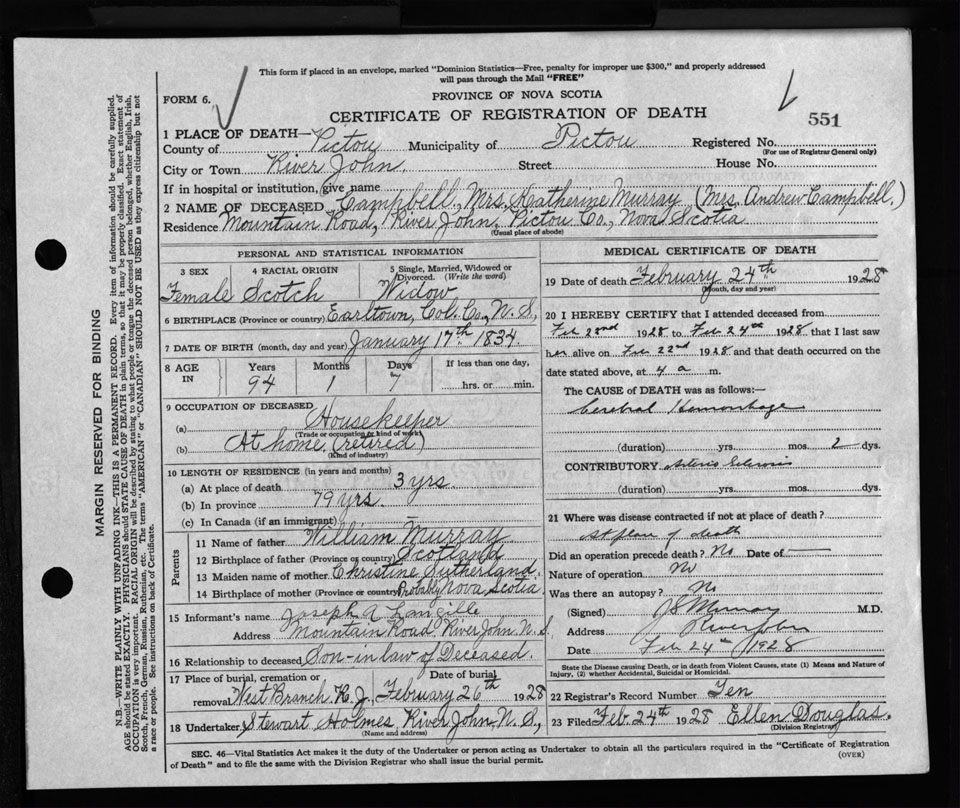 This form if placed in an envelope, marked "Dominion Statistics—Free, penalty for improper use $300," and properly addressed
will pass through the Mail "FREE"
FORM 6.
PROVINCE OF NOVA SCOTIA
CERTIFICATE OF REGISTRATION OF DEATH
551
1 PLACE OF DEATH—
County of Pictou Municipality of Pictou Registered No.
(For use of Registrar General only)
City or Town River John, Street House No.
If in hospital or institution, give name
2 NAME OF DECEASED Campbell, Mrs. Katherine Murray (Mrs. Andrew Campbell,)
Residence Mountain Road, River John, Pictou Co., Nova Scotia
(Usual place of abode)
PERSONAL AND STATISTICAL INFORMATION
3 SEX 4 RACIAL ORIGIN 5 Single, Married, Widowed or Divorced. (Write the word)
Female Scotch Widow
6 BIRTHPLACE (Province or country) Earltown, Col. Co., N. S.,
7 DATE OF BIRTH (month, day and year) January 17th 1834.
8 AGE IN Years Months Days If less than one day,
94 1 7 hrs. or min.
9 OCCUPATION OF DECEASED
(a) Housekeeper
(Trade or occupation or kind of work)
(b) At home (retired)
(Kind of industry)
10 LENGTH OF RESIDENCE (in years and months)
(a) At place of death 3 yrs.
(b) In province 79 yrs.
(c) In Canada (if an immigrant) —
Parents
11 Name of father William Murray
12 Birthplace of father (Province or country) Scotland
13 Maiden name of mother Christine Sutherland.
14 Birthplace of mother (Province or country) Probably Nova Scotia.
15 Informant's name Joseph A Langille
Address Mountain Road, River John, N. S.
16 Relationship to deceased Son-in-law of Deceased.
17 Place of burial, cremation or removal Date of burial
West Branch R. J., February 26th 1928
18 Undertaker Stewart Holmes, River John, N. S.,
(Name and address)
MEDICAL CERTIFICATE OF DEATH
19 Date of death February 24th 1928
(Month, day and year)
20 I HEREBY CERTIFY that I attended deceased from
Feb 22nd 1928 to Feb 24th 1928, that I last saw
her alive on Feb 22nd 1928 and that death occurred on the
date stated above, at 4 a m.
The CAUSE of DEATH was as follows:—
Cerebral Hemorrhage
(duration) yrs. mos. 2 dys.
CONTRIBUTORY Arterio Sclerosis
(duration) yrs. mos. dys.
21 Where was disease contracted if not at place of death?
At place of death
Did an operation precede death? No Date of —
Nature of operation No
Was there an autopsy? No
(Signed) Murray M.D.
Address River John
Date Feb 24th 1928
State the Disease causing Death, or in death from Violent Causes, state (1) Means and Nature of
Injury, (2) whether Accidental, Suicidal or Homicidal.
22 Registrar's Record Number Ten
23 Filed Feb. 24th 1928 Ellen Douglas.
(Division Registrar)
SEC. 46—Vital Statistics Act makes it the duty of the Undertaker or person acting as Undertaker to obtain all the particulars required in the "Certificate of Registration
of Death" and to file the same with the Division Registrar who shall issue the burial permit.
(OVER)
MARGIN RESERVED FOR BINDING
N.B.—WRITE PLAINLY WITH UNFADING INK—THIS IS A PERMANENT RECORD. Every item of information should be carefully supplied.
AGE should be stated EXACTLY. PHYSICIANS should STATE CAUSE OF DEATH in plain terms, so that it may be properly classified. Exact statement of
OCCUPATION is very important. RACIAL ORIGIN will be described by stating to what people or tongue the deceased person belonged, whether English, Irish,
Scotch, French, German, Russian, Ruthenian, etc. The terms "AMERICAN" or "CANADIAN" SHOULD NOT BE USED as they express citizenship but not
a race or people. See instructions on back of Certificate.